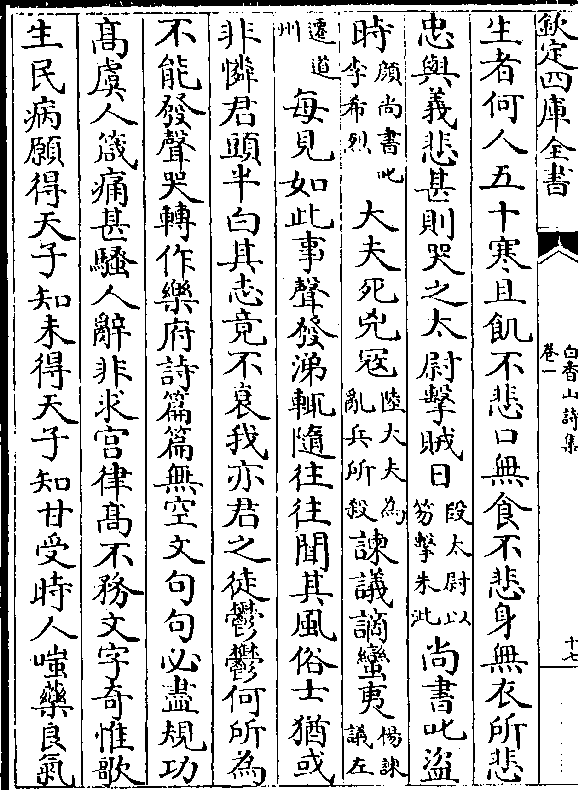 欽定四庫全書
白香山詩集
卷一
十七
生者何人五十寒且飢不悲口無食不悲身無衣所悲
忠與義悲甚則哭之太尉擊賊日段太尉以笏擊朱泚尚書叱盜
時顔尚書叱李希烈大夫死兇冦陸大夫為亂兵所殺諫議謫蠻夷楊諫議左
遷道州每見如此事聲發涕輒隨往往聞其風俗士猶或
非憐君頭半白其志竟不衰我亦君之徒鬱鬱何所為
不能發聲哭轉作樂府詩篇篇無空文句句必盡規功
髙虞人箴痛甚騷人辭非求宫律髙不務文字奇惟歌
生民病願得天子知未得天子知甘受時人嗤藥良氣